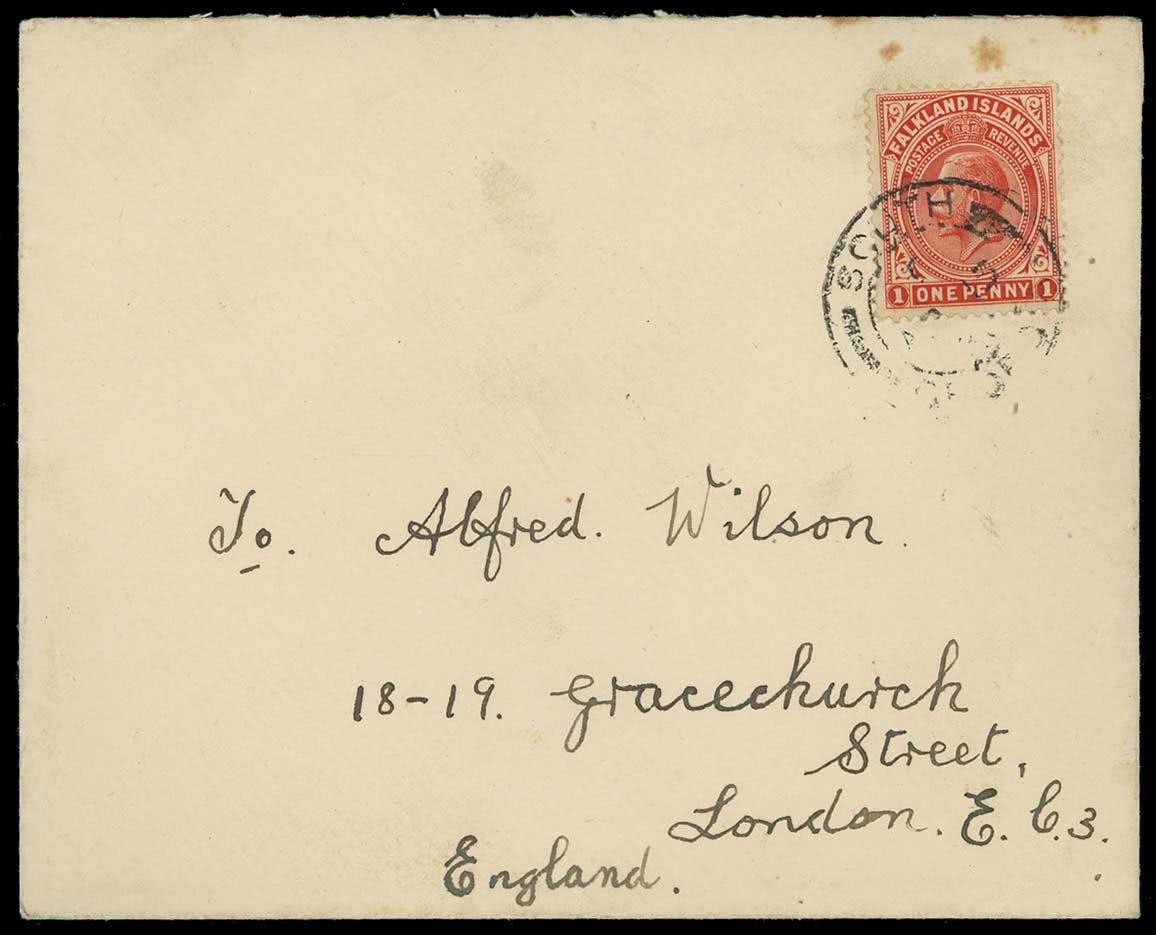 FALKLAND ISLANDS
POSTAGE REVENUE
1 ONE PENNY 1
SOUTH
To. Alfred. Wilson.
18-19. Gracechurch
Street,
London. E. C.3.
England.